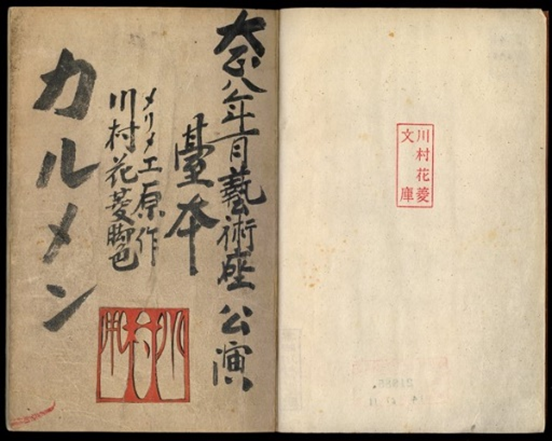 大正八年一月藝術座公演
臺本
メリメエ原作
川村花菱脚色
カルメン
川村花菱
文庫